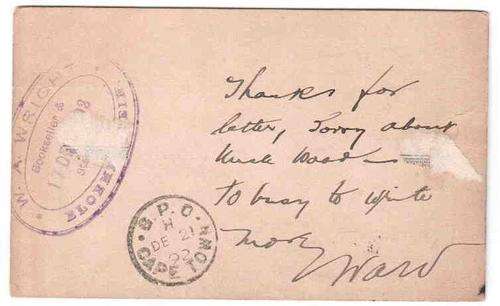 W. A. WRIGHT
Bookseller &
17 DE
G.P.O.
H
DE 21
02
CAPE TOWN
Thanks for
letter, Sorry about
Uncle Wood -
to busy to write
more
Ward